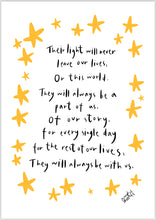 Their light will never
leave our lives,
Or this world.
They will always be a
part of us.
Of our story.
for every single day
for the rest of our lives.
They will always be with us.